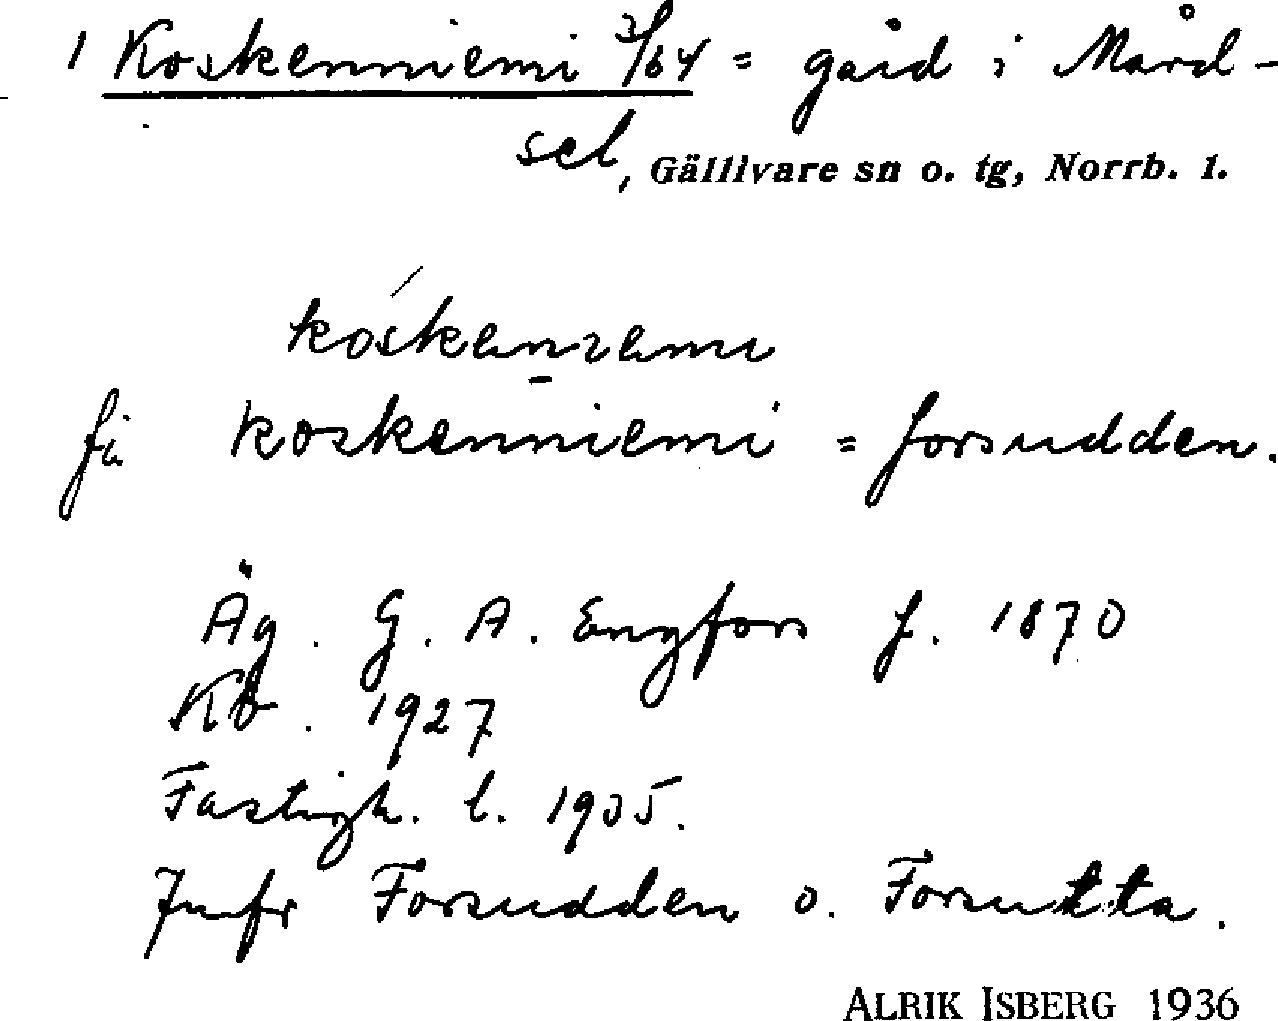 1 Koskenniemi 3/64 = gård i Mård-
sel, Gällivare sn o. tg, Norrb. 1.
kóskenιemi
fi koskenniemi = forsudden.
Äg. G. A. Engfors f. 1870
Kb. 1927
Fastigh. l. 1935.
Jmfr Forsudden o. Forsutta.
ALRIK ISBERG 1936